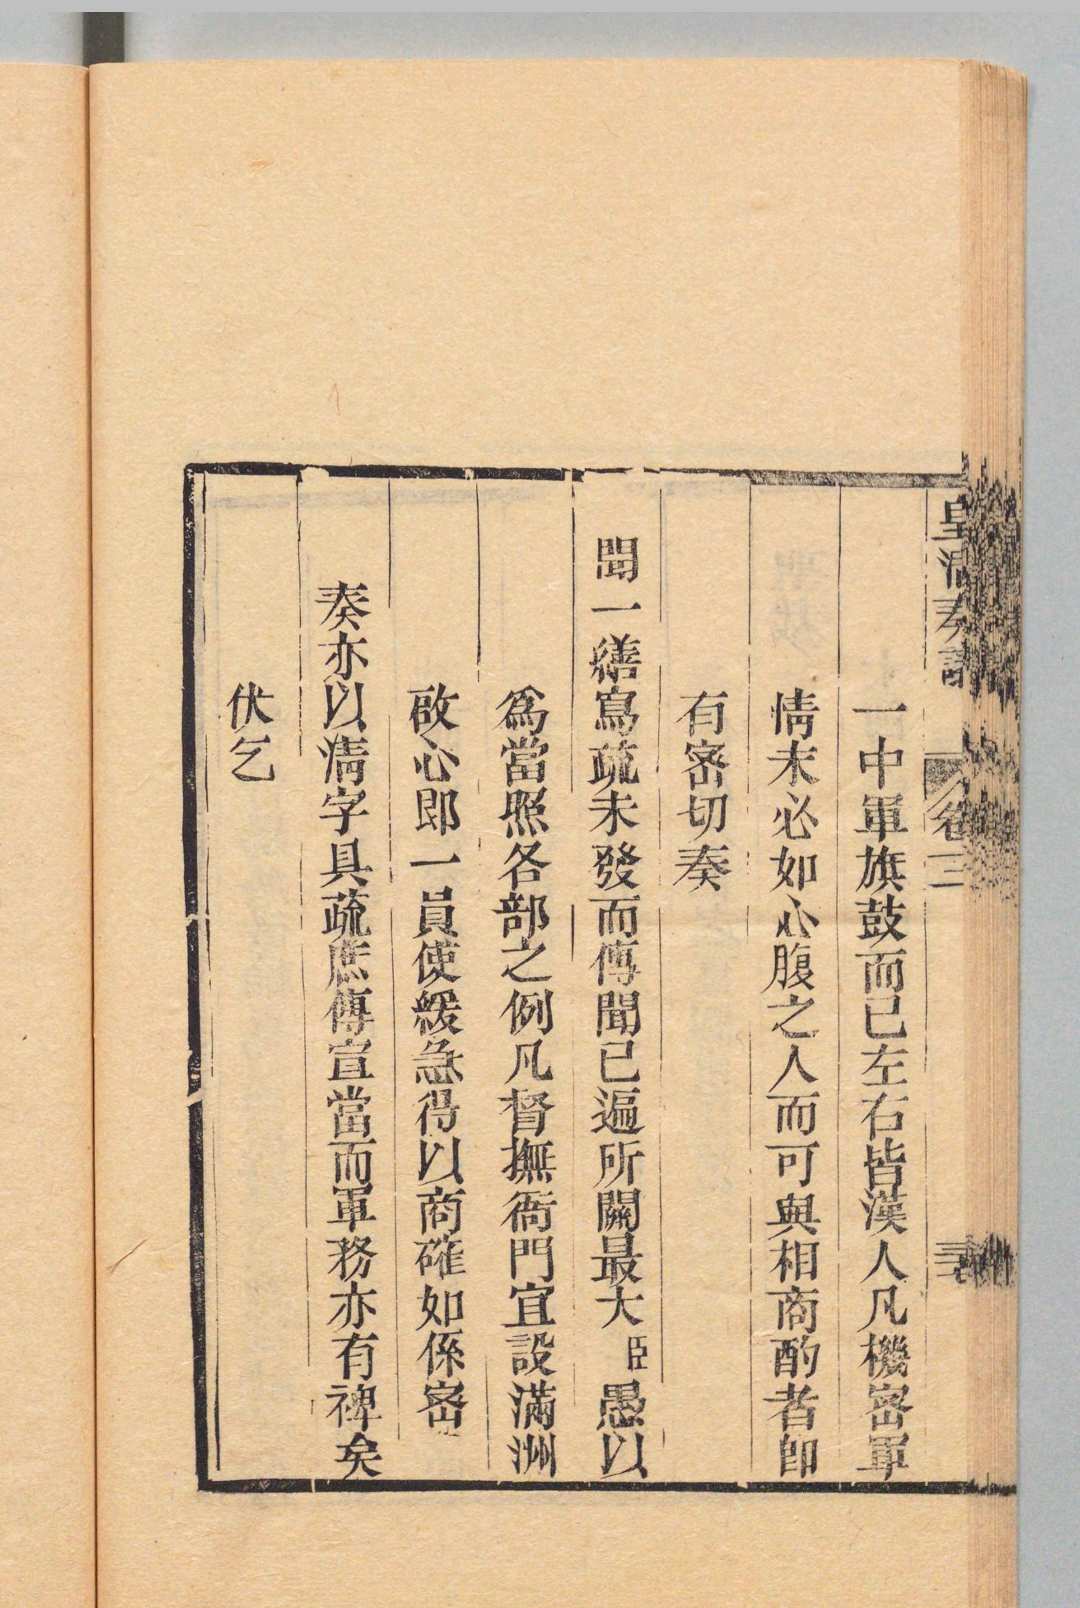 皇清奏議 卷三
一中軍旗鼓而已左右皆漢人凡機密軍
情未必如心腹之人而可與相商酌者卽
有密切奏
聞一繕寫疏未發而傳聞已遍所關最大臣愚以
爲當照各部之例凡督撫衙門宜設滿洲
啟心郎一員使緩急得以商確如係密
奏亦以清字具疏庶傳宣當而軍務亦有裨矣
伏乞